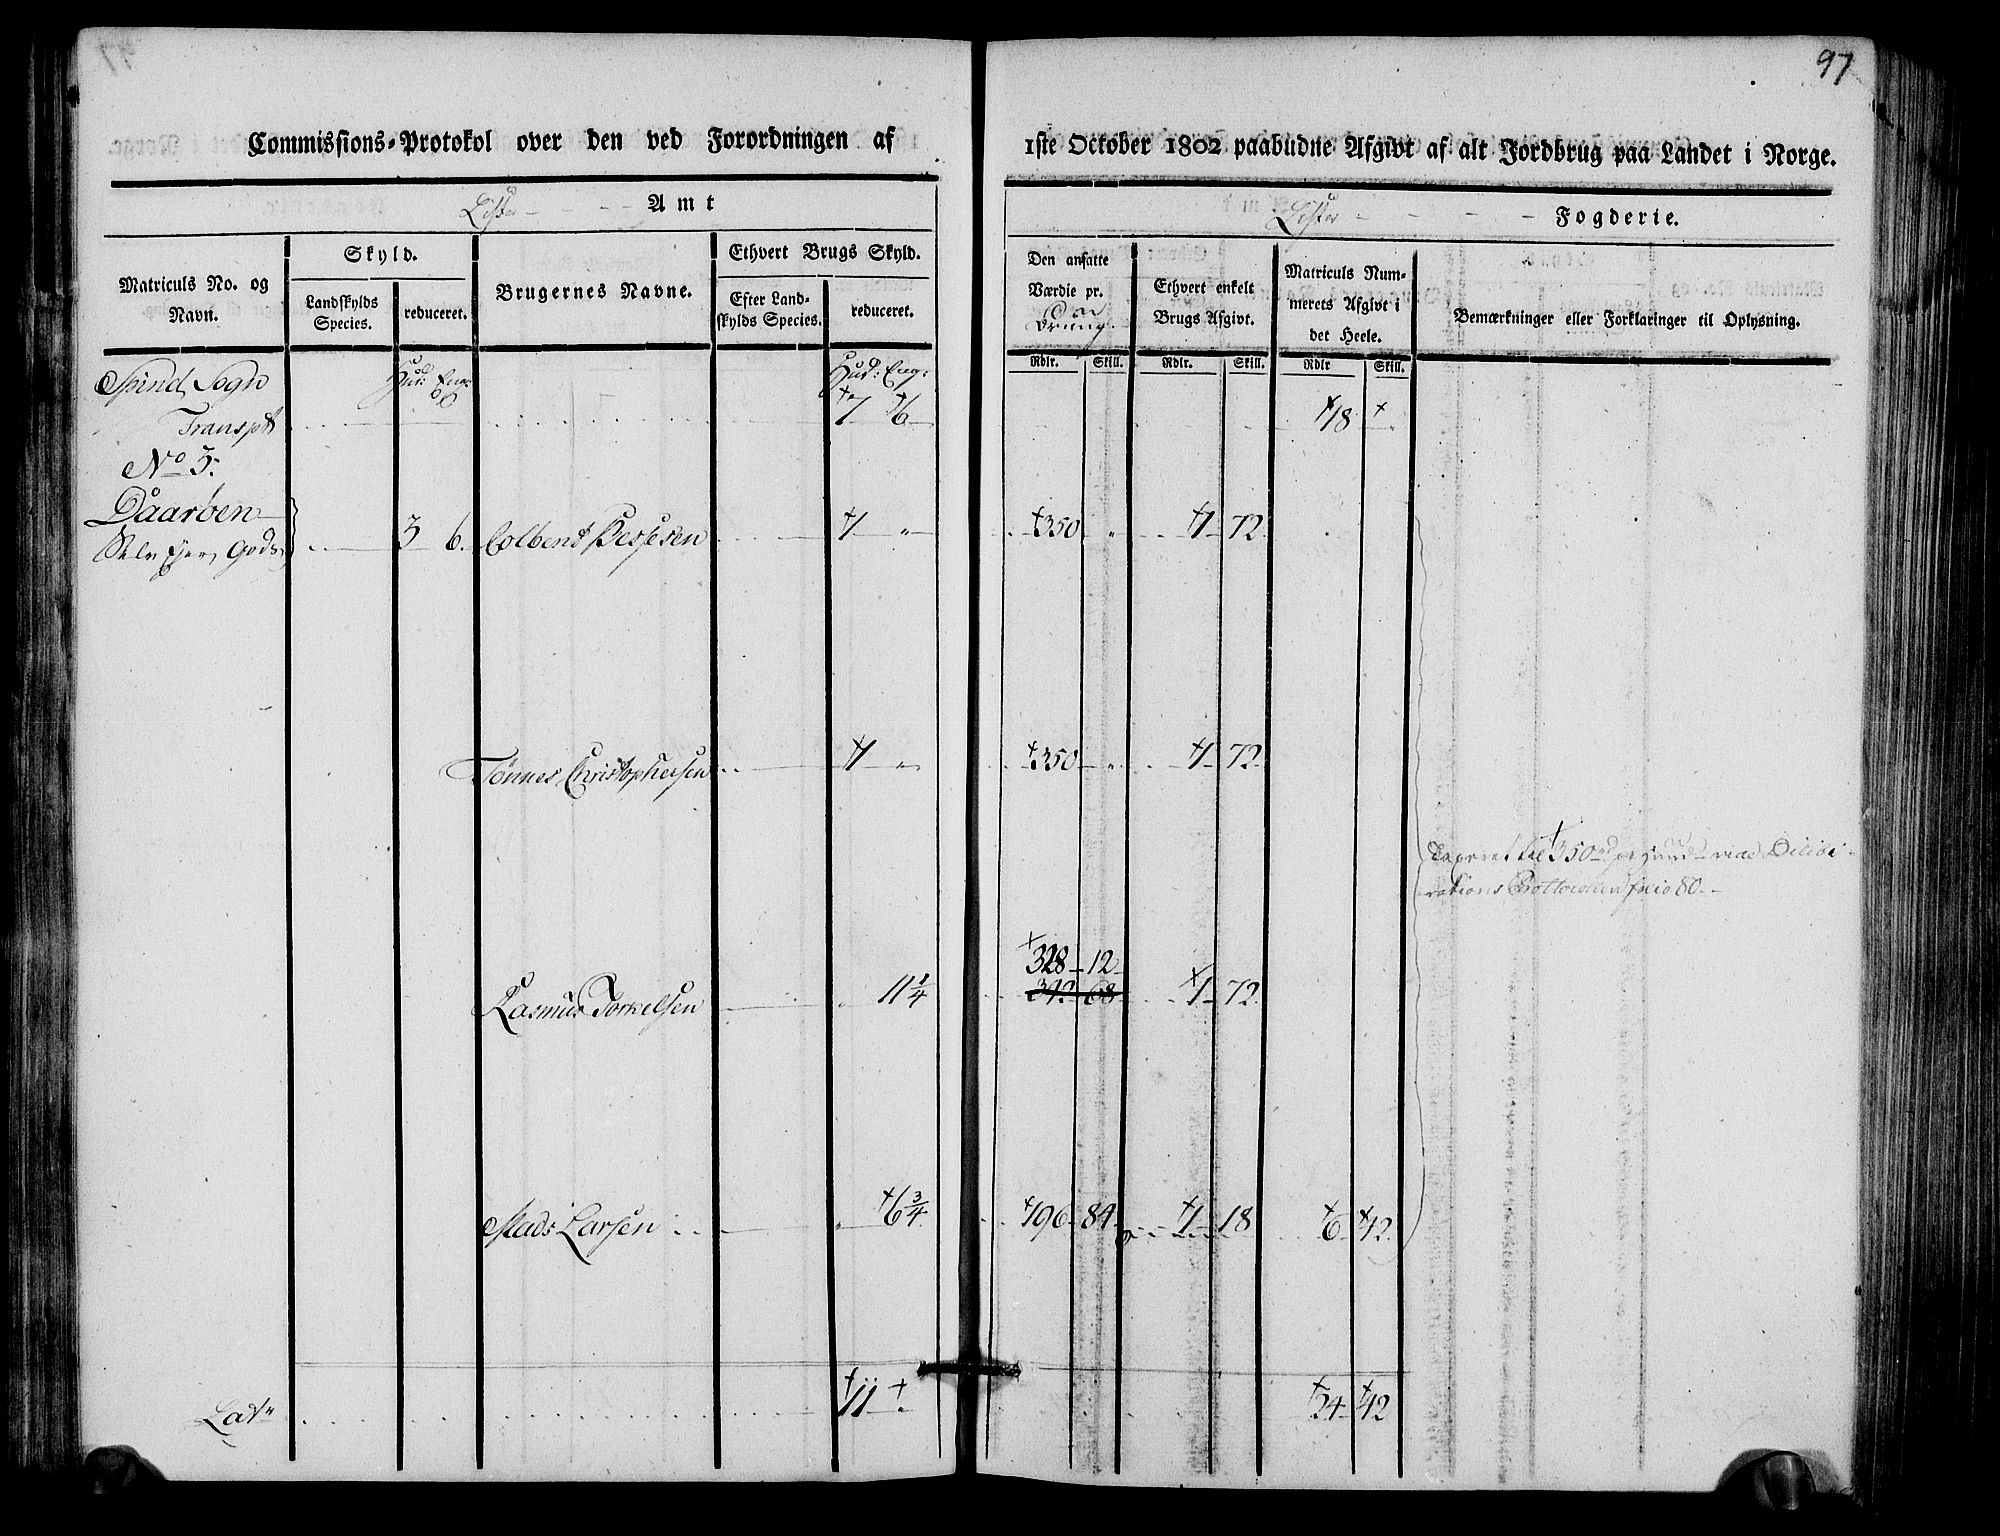 97
Commissions-Protokol over den ved Forordningen af 1ste October 1802 paabudne Afgivt af alt Jordbrug paa Landet i Norge.
Lister Amt
Lister Fogderie.
Matriculs No. og Navn.
Skyld.
Landskylds Species.
reduceret.
Brugernes Navne.
Ethvert Brugs Skyld.
Efter Landskylds Species.
reduceret.
Den ansatte Værdie pr.
Ethvert enkelt Brugs Afgivt.
Matriculs Nummerets Afgivt i det Heele.
Bemærkninger eller Forklaringer til Oplysning.
Rdlr. Skill. Rdlr. Skill. Rdlr Skill.
Spind Sogn Hud: Eng: Hud: Eng:
Transpt 7 6 18
No 5.
Daarøen
Selv Ejer Gods 3 6. Colbent Persesen 1 " 350 " 1 72
Tönnes Christophersen 1 " 350 " 1 72
Taxeret til 350 rd pr hud vide Delibe-
rations Protocollen folio 80
328 12
Rasmus Torkelsen " 11 1/4 342 68 1 72
Mads Larsen " 6 3/4 196 84 1 18 6 42
Lats 11 " 24 42